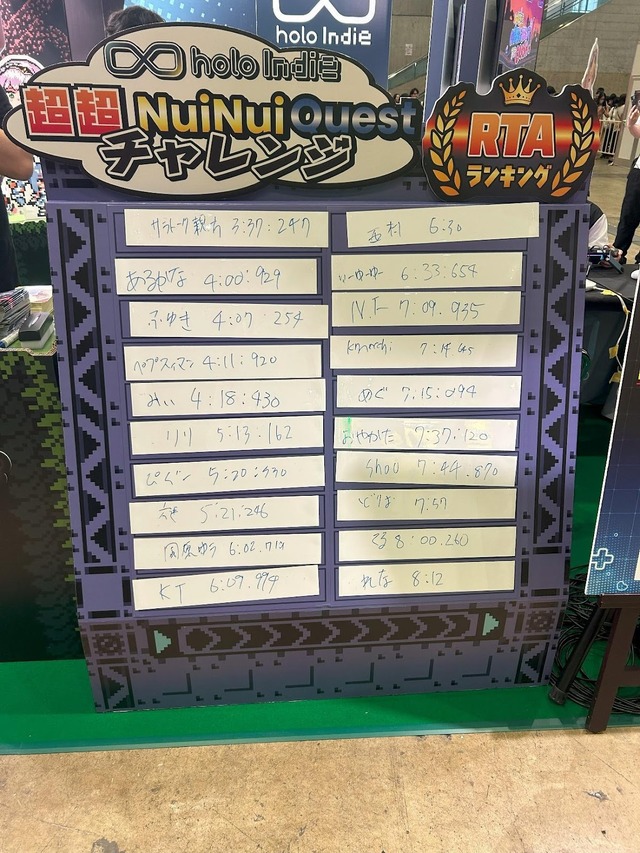 holo Indie
holo Indie
超超 NuiNui Quest
チャレンジ
RTA
ランキング
3:37:247
あるかな 4:00:929
ふゆき 4:07 254
ペプスィマン 4:11:920
みぃ 4:18:430
リリ 5:13.162
ぴぐン 5:20:330
5:21:246
6:02.712
KT 6:09.994
西村 6:30
6:33:654
N.I- 7:09.935
めぐ 7:15:094
おやかた 7:37:120
Shou 7:44.870
7:57
8:00.260
れな 8:12